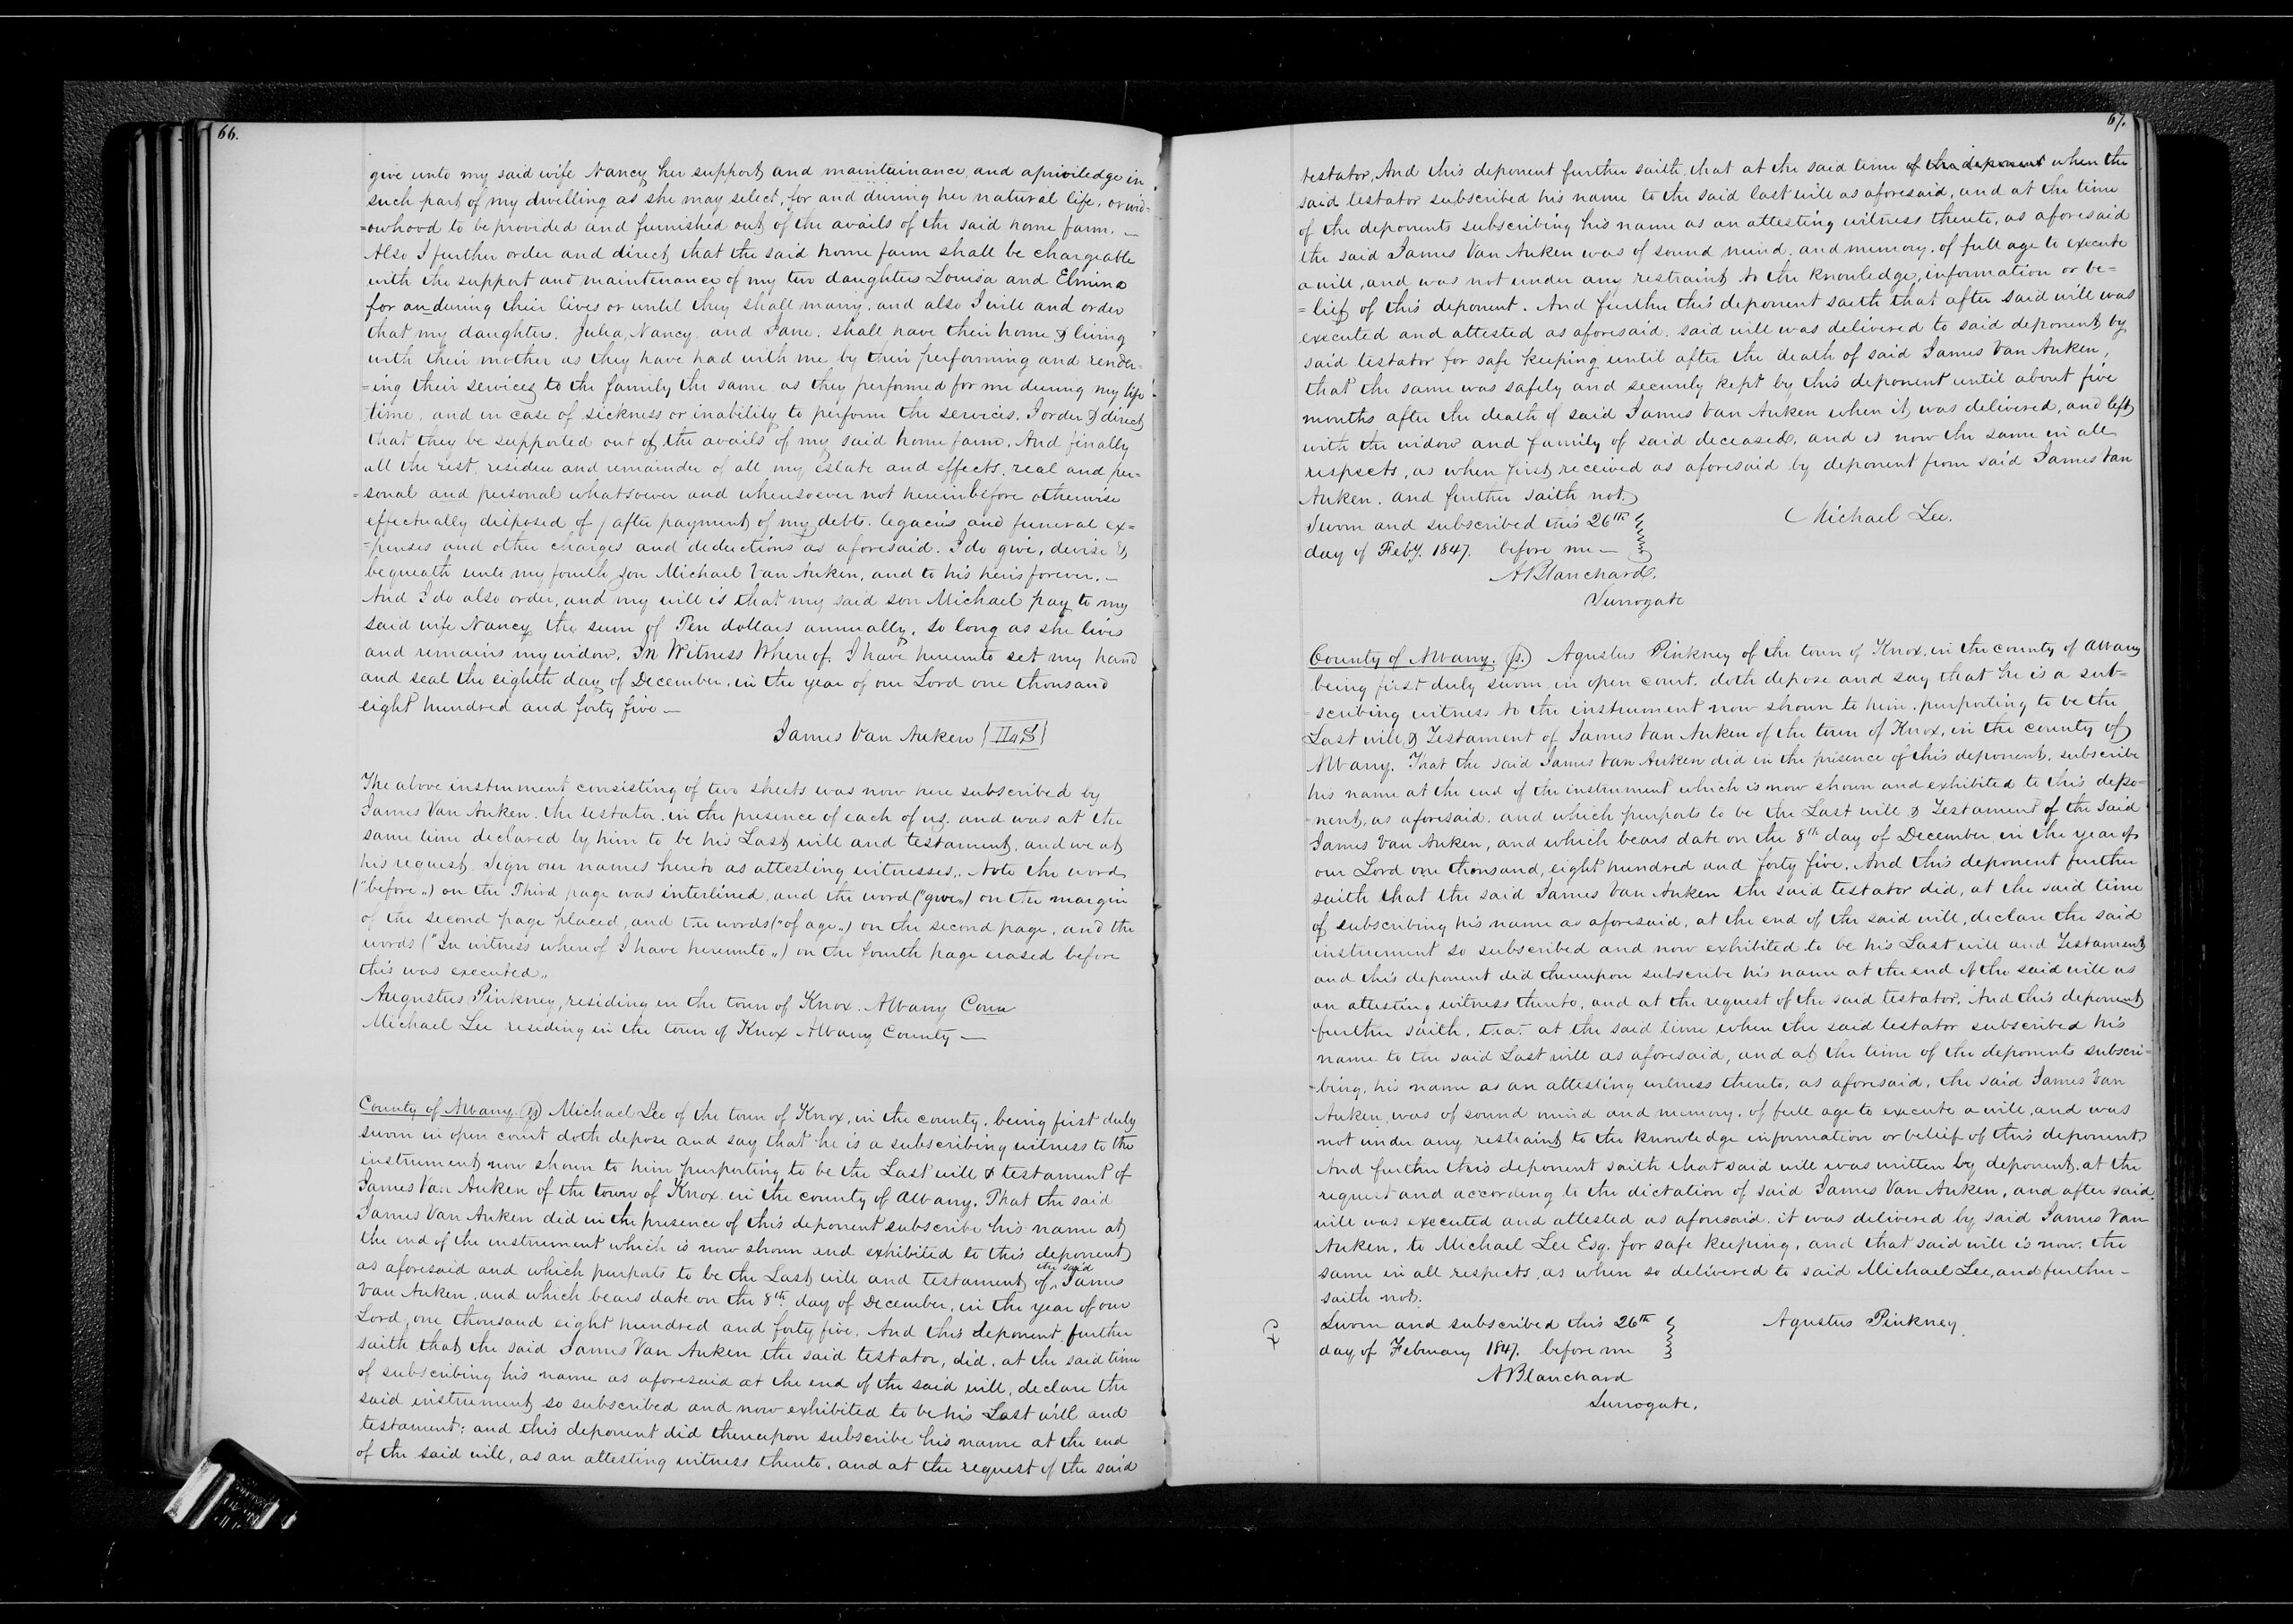 66.
give unto my said wife Nancy her support and maintainance and apriviledge in
such part of my dwelling as she may select, for and during her natural life, or wid-
=owhood to be provided and furnished out of the avails of the said home farm. —
Also I further order and direct that the said home farm shall be chargeable
with the support and maintenance of my two daughters Louisa and Elmina
for an during their lives or until they shall marry, and also I will and order
that my daughters, Julia, Nancy, and Jane, shall have their home & living
with their mother as they have had with me by their performing and render-
=ing their services to the family the same as they performed for me during my life
time, and in case of sickness or inability to perform the services, I order & direct
that they be supported out of the avails of my said home farm. And finally
all the rest, residue and remainder of all my Estate and effects, real and per-
=sonal and personal whatsoever and whensoever not hereinbefore otherwise
effectually disposed of (after payment of my debts, legacies and funeral ex=
=penses and other charges and deductions as aforesaid. I do give, devise &
bequeath unto my fourth son Michael Van Auken, and to his heirs forever. —
And I do also order, and my will is that my said son Michael pay to my
said wife Nancy the sum of Ten dollars annually, so long as she lives
and remains my widow. In Witness Whereof, I have hereunto set my hand
and seal the eighth day of December, in the year of our Lord one thousand
eight hundred and forty five —
James Van Auken
The above instrument consisting of two sheets was now here subscribed by
James Van Auken, the testator, in the presence of each of us, and was at the
same time declared by him to be his Last will and testament, and we at
his request, sign our names hereto as attesting witnesses,. Note the word
("before,,) on the Third page was interlined, and the word ("give,,) on the margin
of the second page placed, and the words ("of age,,) on the second page, and the
words ("In witness whereof I have hereunto,,) on the fourth page erased before
this was executed,,
Augustus Pinkney, residing in the town of Knox. Albany Coun
Michael Lee residing in the town of Knox Albany County —
County of Albany ss) Michael Lee of the town of Knox, in the county, being first duly
sworn in open court doth depose and say that he is a subscribing witness to the
instrument now shown to him purporting to be the Last will & testament of
James Van Auken of the town of Knox in the county of Albany. That the said
James Van Auken did in the presence of this deponent subscribe his name at
the end of the instrument which is now shown and exhibited to this deponent
as aforesaid and which purports to be the Last will and testament of ^the said James
Van Auken, and which bears date on the 8th day of December, in the year of our
Lord, one thousand eight hundred and forty five. And this deponent further
saith that the said James Van Auken the said testator, did, at the said time
of subscribing his name as aforesaid at the end of the said will, declare the
said instrument so subscribed and now exhibited to be his Last will and
testament; and this deponent did thereupon subscribe his name at the end
of the said will, as an attesting witness thereto, and at the request of the said
67.
testator, And this deponent further saith, that at the said time of the deponent when the
said testator subscribed his name to the said last will as aforesaid, and at the time
of the deponents subscribing his name as an attesting witness thereto, as aforesaid
the said James Van Auken was of sound mind, and memory, of full age to execute
a will, and was not under any restraint to the knowledge, information or be=
=lief of this deponent. And further this deponent saith that after said will was
executed and attested as aforesaid, said will was delivered to said deponent by
said testator for safe keeping until after the death of said James Van Auken,
that the same was safely and securely kept by this deponent until about five
months after the death of said James Van Auken when it was delivered, and left
with the widow and family of said deceased, and is now the same in all
respects, as when first received as aforesaid by deponent from said James Van
Auken. and further saith not.
Sworn and subscribed this 26th
day of Feby. 1847. before me —
Michael Lee.
A Blanchard.
Surrogate
County of Albany. ss.) Agustus Pinkney of the town of Knox, in the county of Albany
being first duly sworn in open court, doth depose and say that he is a sub=
scribing witness to the instrument now shown to him, purporting to be the
Last will & Testament of James Van Auken of the town of Knox, in the county of
Albany. That the said James Van Auken did in the presence of this deponent, subscribe
his name at the end of the instrument which is now shown and exhibited to this depo=
=nent, as aforesaid, and which purports to be the Last will & Testament of the said
James Van Auken, and which bears date on the 8th day of December in the year of
our Lord one thousand, eight hundred and forty five. And this deponent further
saith that the said James Van Auken the said testator did, at the said time
of subscribing his name as aforesaid, at the end of the said will, declare the said
instrument so subscribed and now exhibited to be his Last will and Testament
and this deponent did thereupon subscribe his name at the end of the said will as
an attesting witness thereto, and at the request of the said testator. And this deponent
further saith, that at the said time when the said testator subscribed his
name to the said Last will as aforesaid, and at the time of the deponents subscri=
=bing, his name as an attesting witness thereto, as aforesaid, the said James Van
Auken, was of sound mind and memory, of full age to execute a will, and was
not under any restraint to the knowledge information or belief of this deponent
And further this deponent saith that said will was written by deponent, at the
request and according to the dictation of said James Van Auken, and after said
will was executed and attested as aforesaid, it was delivered by said James Van
Auken, to Michael Lee Esq. for safe keeping, and that said will is now, the
same in all respects, as when so delivered to said Michael Lee, and further —
saith not.
Sworn and subscribed this 26th
day of February 1847. before me
Agustus Pinkney.
A Blanchard
Surrogate.